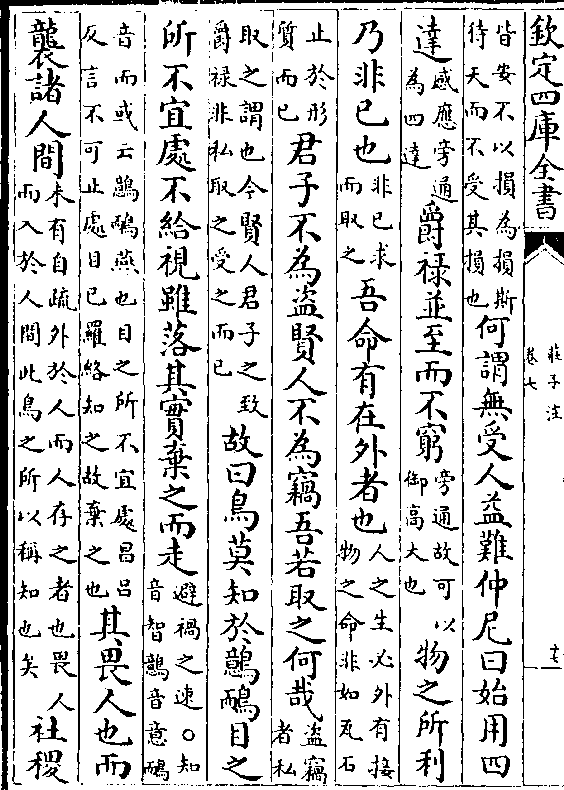 欽定四庫全書
莊子注
卷七
十七
皆安不以損為損斯
待天而不受其損也
何謂無受人益難仲尼曰始用四
達
感應旁通
為四達
爵禄並至而不窮
旁通故可以
御高大也
物之所利
乃非已也
非已求
而取之
吾命有在外者也
人之生必外有接
物之命非如瓦石
止於形
質而已
君子不為盗賢人不為竊吾若取之何哉
盗竊
者私
取之謂也今賢人君子之致
爵禄非私取之受之而已
故曰鳥莫知於鷾鴯目之
所不宜處不給視雖落其實棄之而走
避禍之速○知
音智鷾音意鴯
音而或云鷾鴯燕也目之所不宜處昌吕
反言不可止處目已羅絡知之故棄之也
其畏人也而
襲諸人間
未有自疏外於人而人存之者也畏人
而入於人間此鳥之所以稱知也矣
社稷